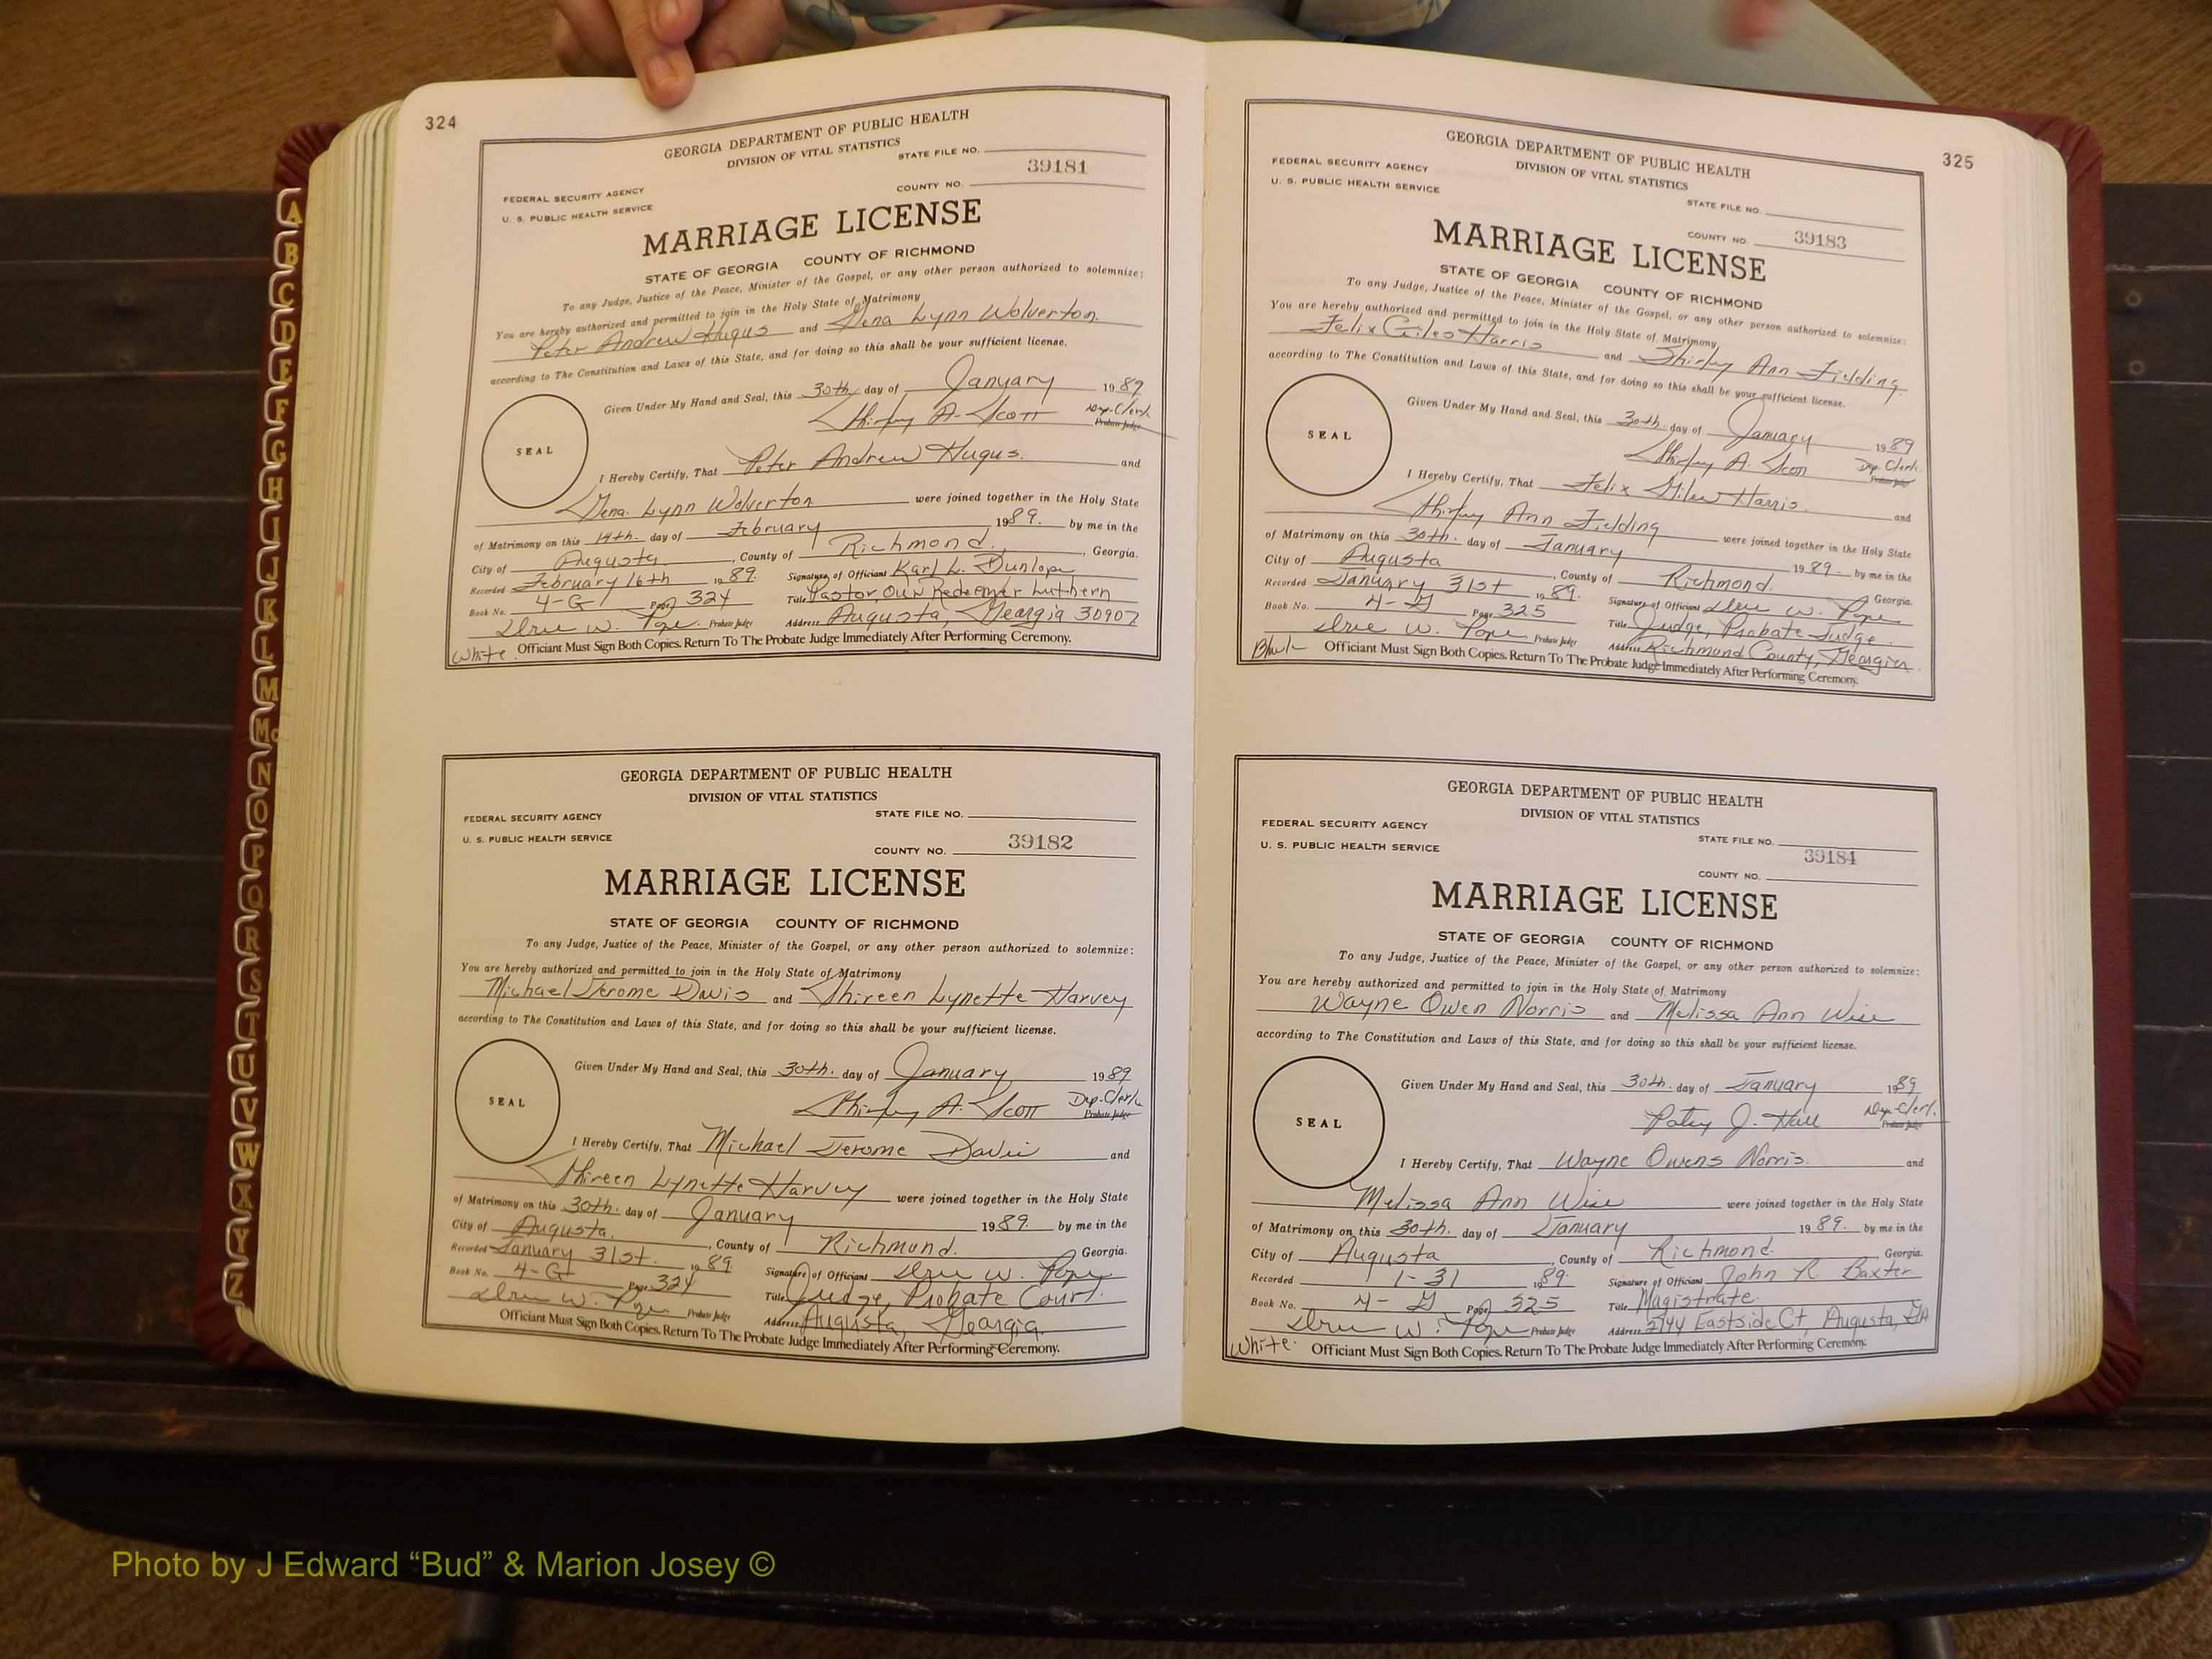 324
GEORGIA DEPARTMENT OF PUBLIC HEALTH
DIVISION OF VITAL STATISTICS
STATE FILE NO.
39181
FEDERAL SECURITY AGENCY
COUNTY NO.
U. S. PUBLIC HEALTH SERVICE
MARRIAGE LICENSE
STATE OF GEORGIA COUNTY OF RICHMOND
To any Judge, Justice of the Peace, Minister of the Gospel, or any other person authorized to solemnize:
You are hereby authorized and permitted to join in the Holy State of Matrimony
Peter Andrew Hugus and Lynn Wolverton
according to The Constitution and Laws of this State, and for doing so this shall be your sufficient license.
Given Under My Hand and Seal, this 30th. day of January 1989
Shirley A. Scott Dep. Clerk
Probate Judge
SEAL
I Hereby Certify, That Peter Andrew Hugus. and
Lynn Wolverton were joined together in the Holy State
of Matrimony on this 14th. day of February 1989. by me in the
City of Augusta, County of Richmond, Georgia.
Recorded February 16th 1989. Signature of Officiant Karl L. Dunlope
Book No. 4-G Page 324 Title Pastor Our Redeemer Luthern
W. Pope Probate Judge Address Augusta, Georgia 30907
White. Officiant Must Sign Both Copies. Return To The Probate Judge Immediately After Performing Ceremony.
GEORGIA DEPARTMENT OF PUBLIC HEALTH
DIVISION OF VITAL STATISTICS
FEDERAL SECURITY AGENCY
STATE FILE NO.
U. S. PUBLIC HEALTH SERVICE
COUNTY NO. 39182
MARRIAGE LICENSE
STATE OF GEORGIA COUNTY OF RICHMOND
To any Judge, Justice of the Peace, Minister of the Gospel, or any other person authorized to solemnize:
You are hereby authorized and permitted to join in the Holy State of Matrimony
Michael Jerome Davis and Shireen Lynette Harvey
according to The Constitution and Laws of this State, and for doing so this shall be your sufficient license.
Given Under My Hand and Seal, this 30th. day of January 1989
Shirley A. Scott Dep. Clerk
Probate Judge
SEAL
I Hereby Certify, That Michael Jerome Davis and
Shireen Lynette Harvey were joined together in the Holy State
of Matrimony on this 30th. day of January 1989. by me in the
City of Augusta, County of Richmond. Georgia.
Recorded January 31st. 1989. Signature of Officiant W. Pope
Book No. 4-G Page 324 Title Judge, Probate Court.
W. Pope Probate Judge Address Augusta, Georgia.
Officiant Must Sign Both Copies. Return To The Probate Judge Immediately After Performing Ceremony.
325
GEORGIA DEPARTMENT OF PUBLIC HEALTH
DIVISION OF VITAL STATISTICS
FEDERAL SECURITY AGENCY
U. S. PUBLIC HEALTH SERVICE
STATE FILE NO.
COUNTY NO. 39183
MARRIAGE LICENSE
STATE OF GEORGIA COUNTY OF RICHMOND
To any Judge, Justice of the Peace, Minister of the Gospel, or any other person authorized to solemnize:
You are hereby authorized and permitted to join in the Holy State of Matrimony
Felix Giles Harris and Shirley Ann Fielding
according to The Constitution and Laws of this State, and for doing so this shall be your sufficient license.
Given Under My Hand and Seal, this 30th. day of January 1989
Shirley A. Scott Dep. Clerk.
Probate Judge
SEAL
I Hereby Certify, That Felix Giles Harris. and
Shirley Ann Fielding were joined together in the Holy State
of Matrimony on this 30th. day of January 1989. by me in the
City of Augusta, County of Richmond. Georgia.
Recorded January 31st 1989. Signature of Officiant W. Pope
Book No. 4-G Page 325 Title Judge, Probate Judge.
W. Pope Probate Judge Address Richmond County, Georgia.
Black Officiant Must Sign Both Copies. Return To The Probate Judge Immediately After Performing Ceremony.
GEORGIA DEPARTMENT OF PUBLIC HEALTH
DIVISION OF VITAL STATISTICS
FEDERAL SECURITY AGENCY
STATE FILE NO.
39184
U. S. PUBLIC HEALTH SERVICE
COUNTY NO.
MARRIAGE LICENSE
STATE OF GEORGIA COUNTY OF RICHMOND
To any Judge, Justice of the Peace, Minister of the Gospel, or any other person authorized to solemnize:
You are hereby authorized and permitted to join in the Holy State of Matrimony
Wayne Owen Norris and Melissa Ann Wise
according to The Constitution and Laws of this State, and for doing so this shall be your sufficient license.
Given Under My Hand and Seal, this 30th. day of January 1989
Patsy J. Hall Dep. Clerk.
Probate Judge
SEAL
I Hereby Certify, That Wayne Owens Norris. and
Melissa Ann Wise were joined together in the Holy State
of Matrimony on this 30th. day of January 1989. by me in the
City of Augusta, County of Richmond. Georgia.
Recorded 1-31 1989. Signature of Officiant John R. Baxter
Book No. 4-G Page 325 Title Magistrate.
W. Pope Probate Judge Address 2744 Eastside Ct, Augusta, GA
White. Officiant Must Sign Both Copies. Return To The Probate Judge Immediately After Performing Ceremony.
A
B
C
D
E
F
G
H
I
J
K
L
M
Mc
N
O
P
Q
R
S
T
U
V
W
X
Y
Z
Photo by J Edward “Bud” & Marion Josey ©